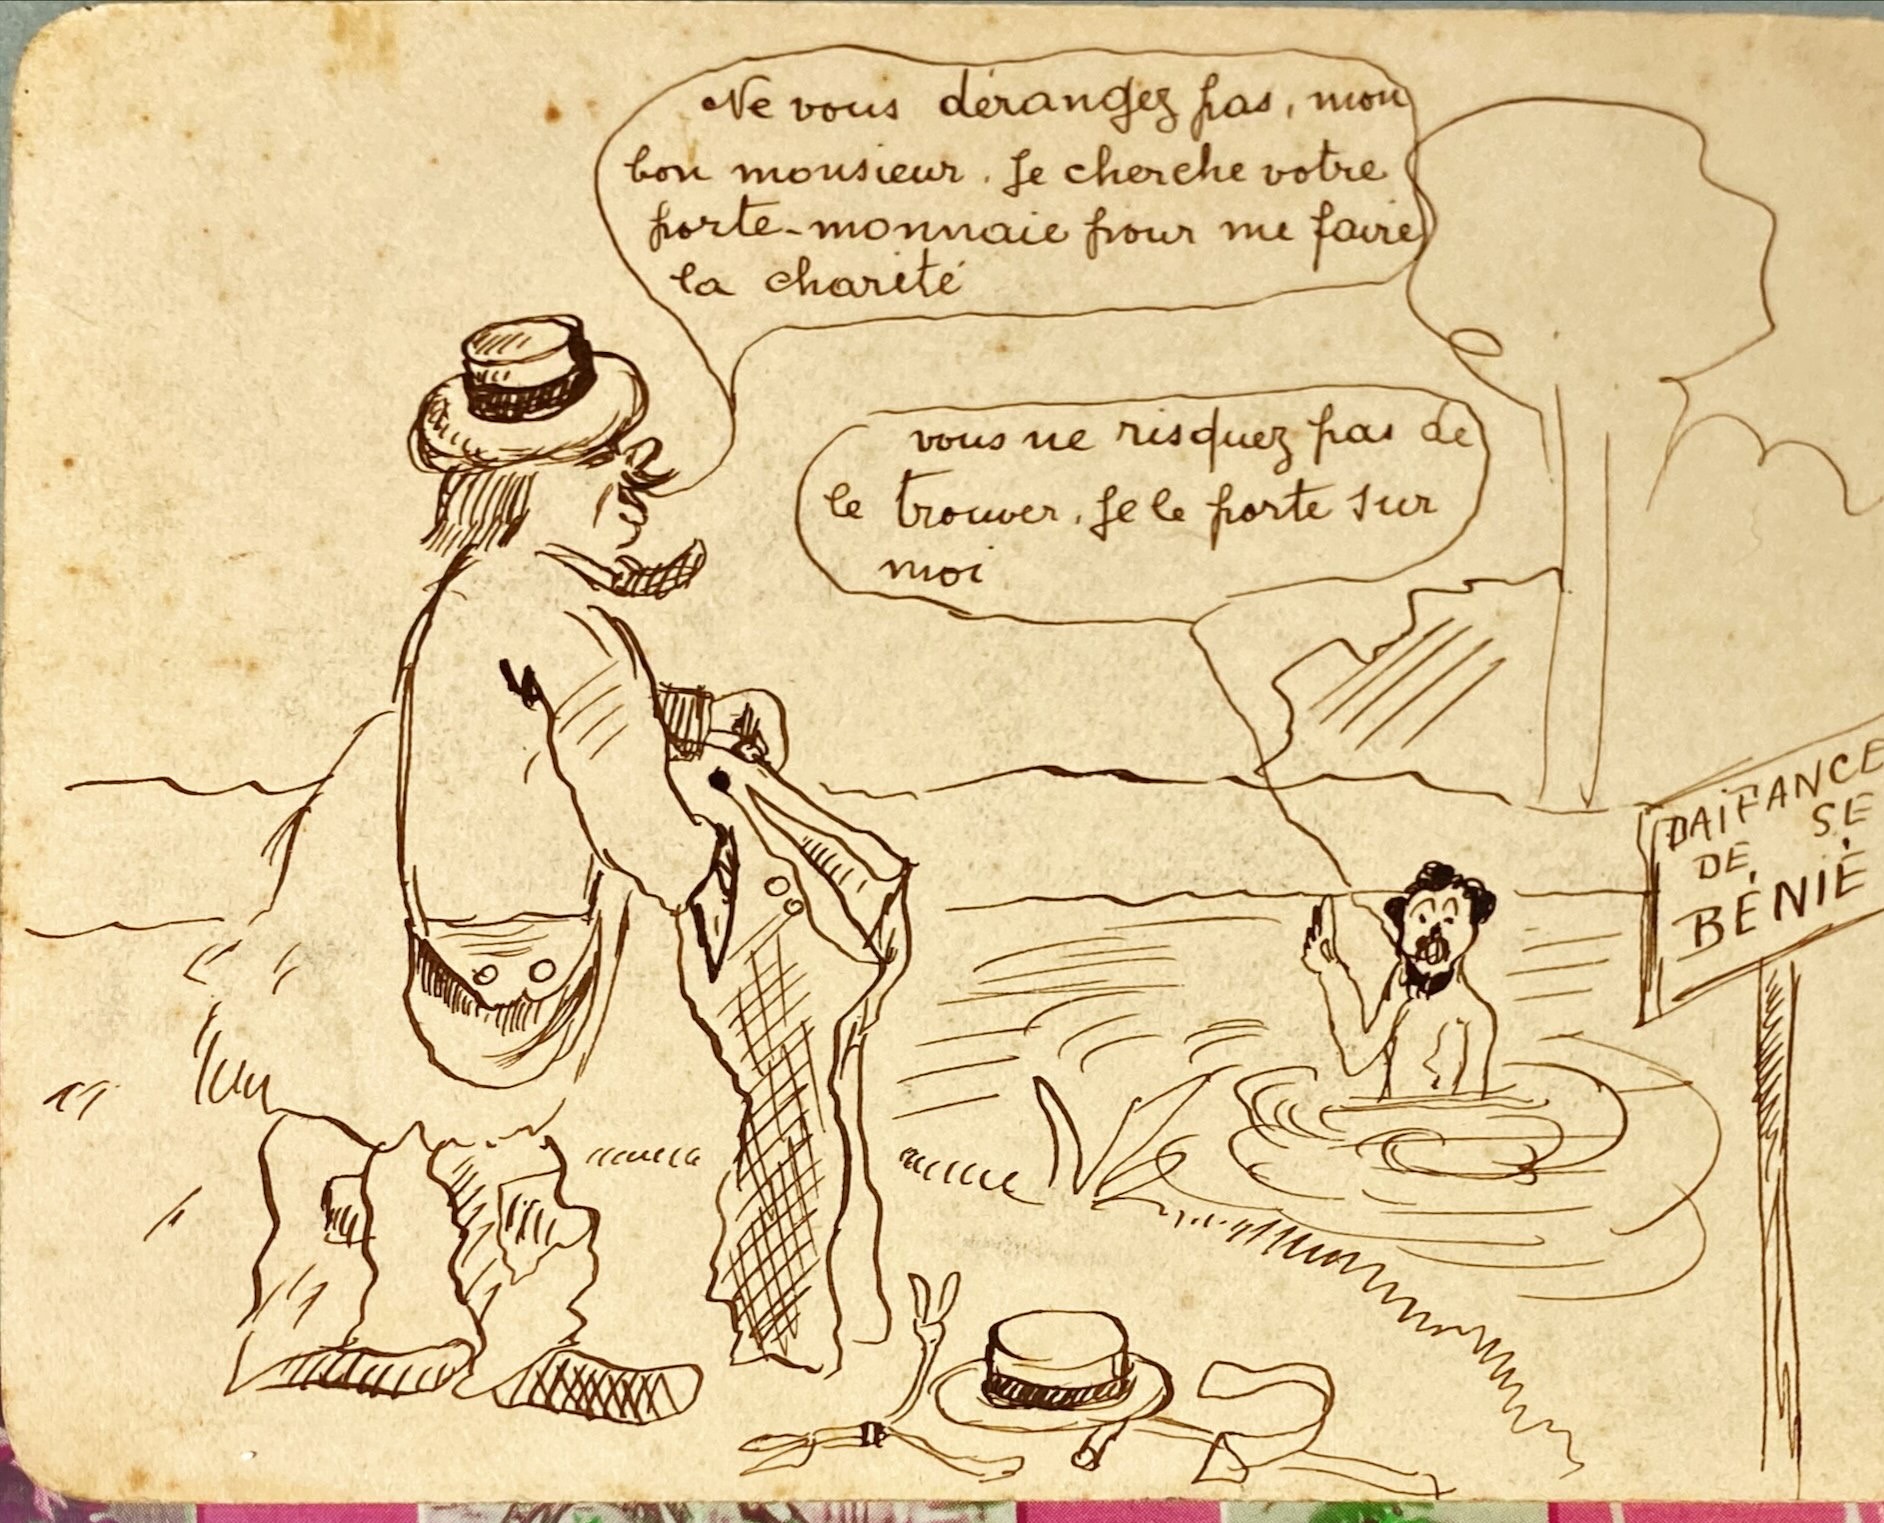 Ne vous dérangez pas, mon
bon monsieur. Je cherche votre
porte-monnaie pour me faire
la charité
vous ne risquez pas de
le trouver. Je le porte sur
moi
DAIFANCE
DE SE
BÉNIÉ